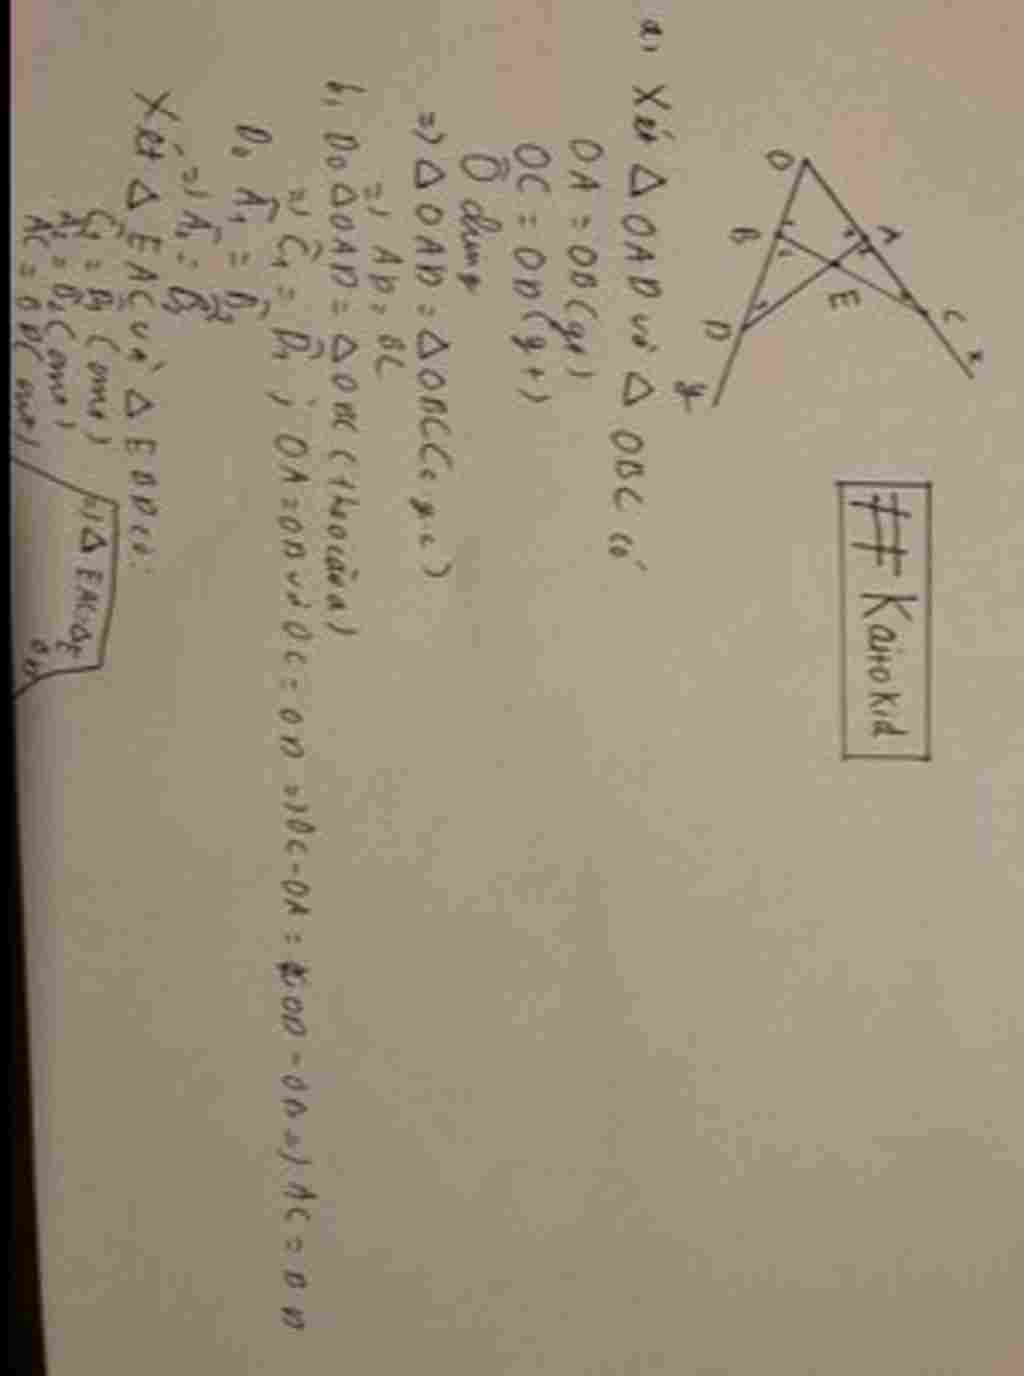 # Kaitokid
O
A
B
C
D
E
x
y
a) Xét Δ OAD và Δ OBC có
OA = OB (gt)
OC = OD (gt)
Ô chung
=) Δ OAD = Δ OBC (c g c)
=) AD = BC
b, Do Δ OAD = Δ OBC (theo câu a)
=) Ĉ1 = D̂1 ; OA = OB và OC = OD =) OC - OA = OD - OB =) AC = BD
Do Â1 = B̂1
=) Â2 = B̂2
Xét Δ EAC và Δ EBD có:
Ĉ1 = D̂1 (cmt)
Â2 = B̂2 (cmt)
AC = BD (cmt)
=) Δ EAC = Δ EBD